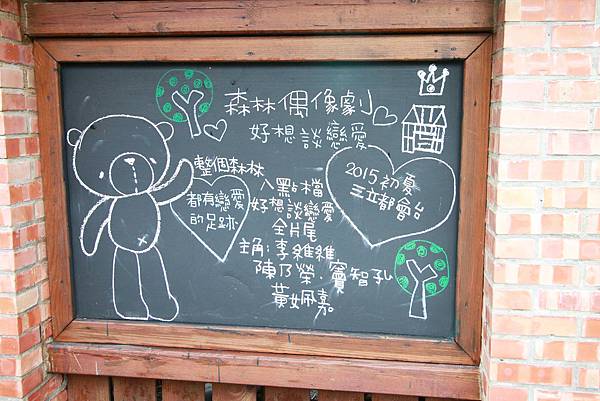 森林偶像劇
好想談戀愛
整個森林
都有戀愛
的足跡
八點檔
好想談戀愛
全片尾
主角:李維維
陳乃榮.竇智孔
黃姵嘉
2015初夏
三立都會台